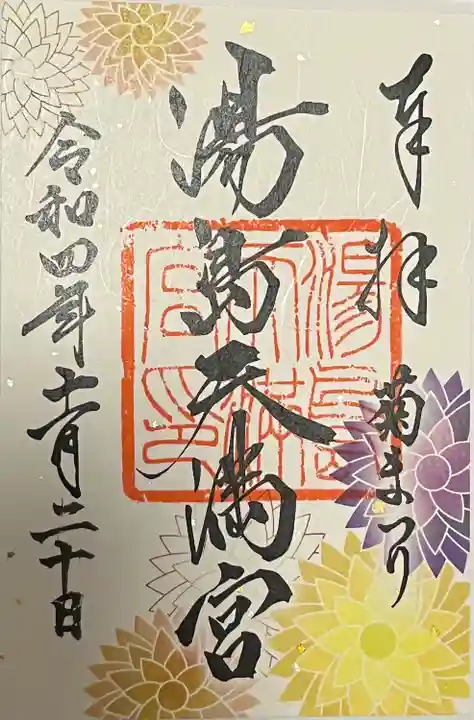 奉拝 菊まつり
湯島天満宮
湯島天満宮印
令和四年十一月二十日